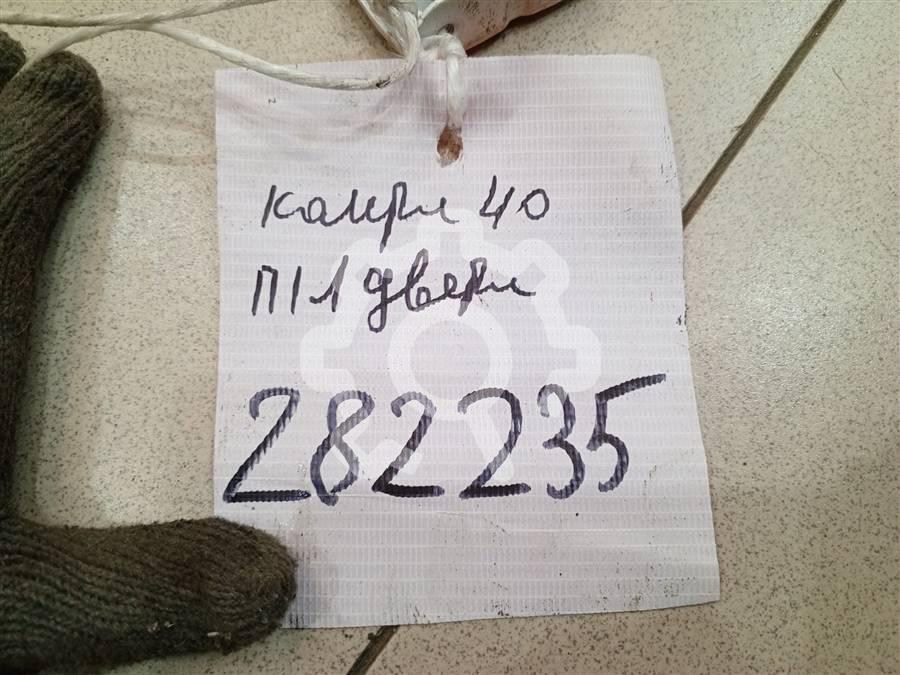 камри 40
П Л двери
282235